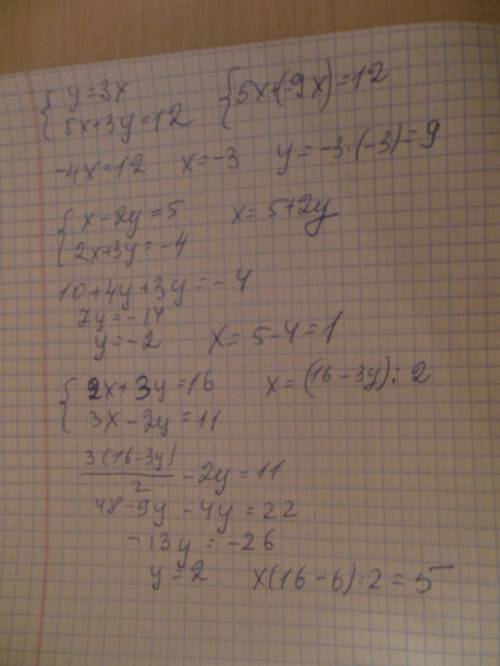 { y=3x
5x+3y=12 { 5x+(-9x)=12
-4x=12 x=-3 y=-3·(-3)=9
{ x-2y=5 x=5+2y
2x+3y=-4
10+4y+3y=-4
7y=-14
y=-2 x=5-4=1
{ 2x+3y=16 x=(16-3y):2
3x-2y=11
3(16-3y)/2 -2y=11
48-9y-4y=22
-13y=-26
y=2 x(16-6):2=5